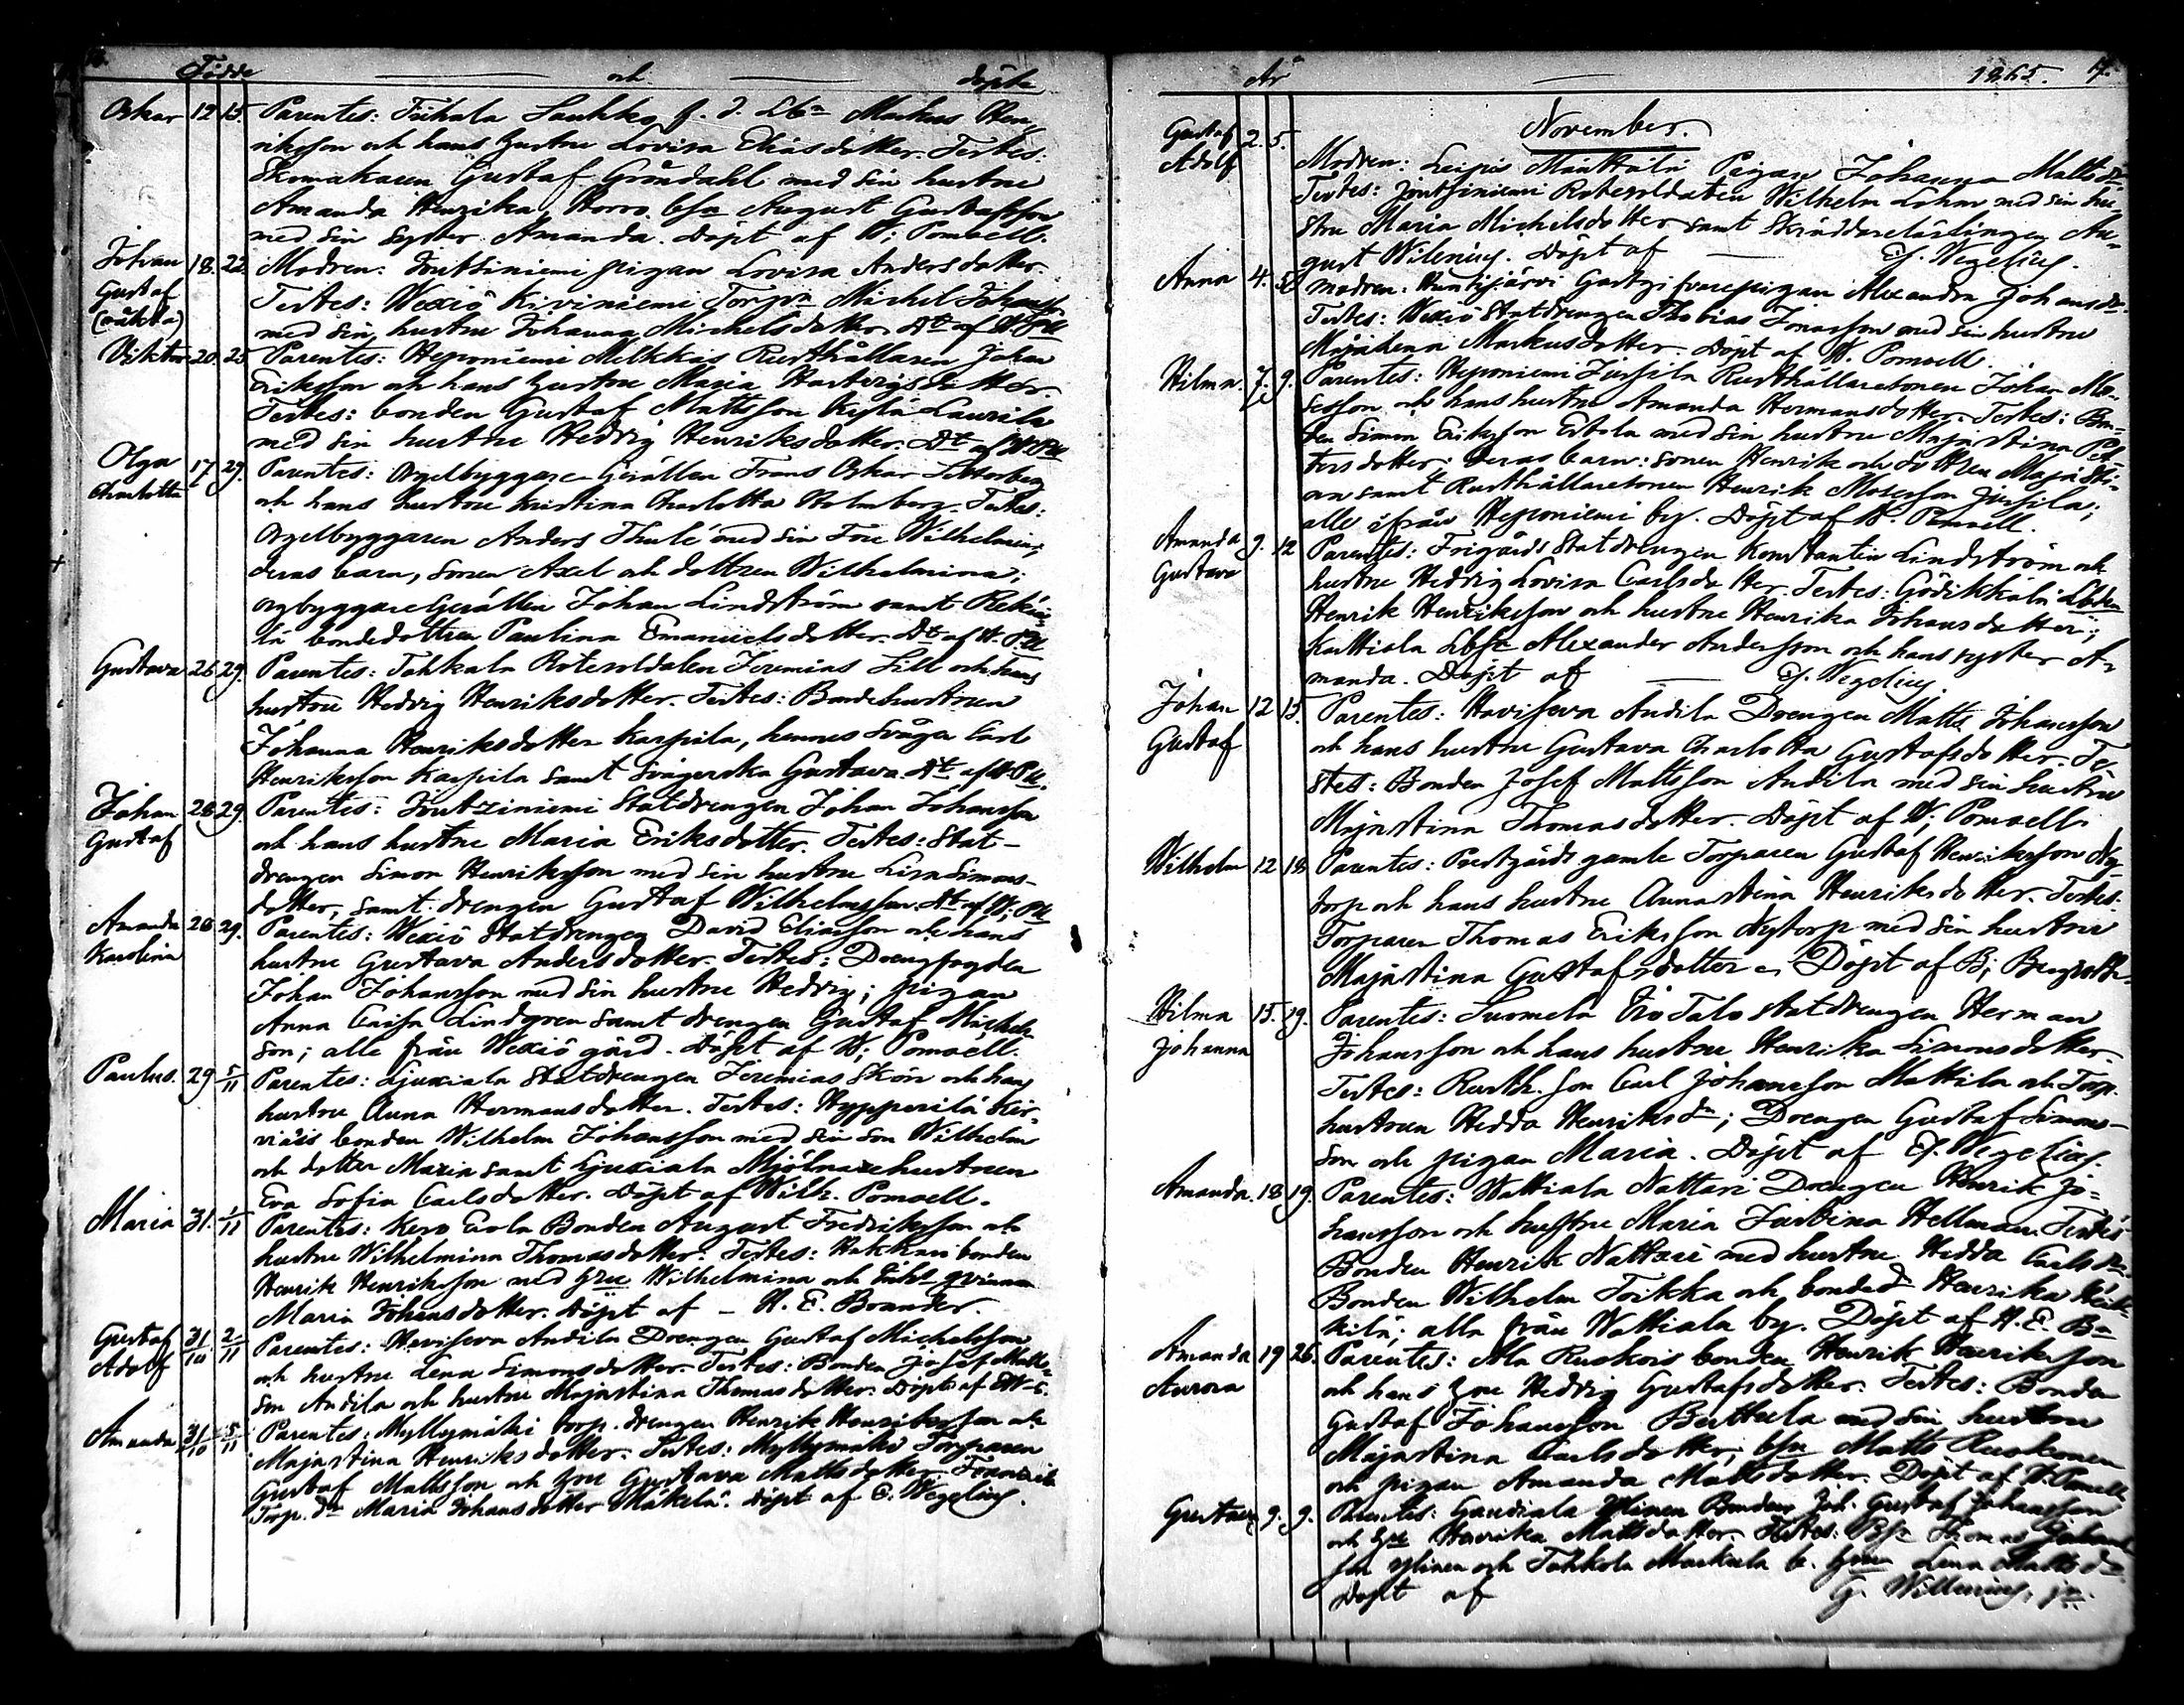 Födde och döpte
Oskar 12 15. Parentes: Tuhala Laukko f. d. Lbn Markus Hen-
riksson och hans hustru Lovisa Eliasdotter. Testes:
Skomakaren Gustaf Gröndahl med sin hustru
Amanda Henrika, bsn August Gustafsson
med sin syster Amanda. Döpt af W; Pomoell.
Johan Gustaf (oäkta) 18. 22. Modren: Jontsiniemi pigan Lovisa Andersdotter.
Testes: Wexiö Kiviniemi Torpn Michel Johansson
med sin hustru Johanna Michelsdotter. Dt af W Pll
Viktor 20. 25. Parentes: Heponiemi Melkkas Rusthållaren Johan
Eriksson och hans hustru Maria Hartvigsdotter.
Testes: bonden Gustaf Mattsson Kylä Laurila
med sin hustru Hedvig Henriksdotter. Dt af W Pll
Olga Charlotta 17 29. Parentes: Orgelbyggare Gesällen Frans Oskar
och hans hustru Kristina Charlotta Holmberg. Testes:
Orgelbyggaren Anders Thulé med sin Fru Wilhelmina;
deras barn, sonen Axel och dottren Wilhelmina;
orgbyggare Gesällen Johan Lindström samt
bondedottren Paulina Emanuelsdotter. Dt af W. Pll
Gustava 26 29. Parentes: Tahkala Rotesoldaten Jeremias Sill och hans
hustru Hedvig Henriksdotter. Testes: Bondehustrun
Johanna Henriksdotter Karpila, hennes Svåger Carl
Henriksson Karpila samt Svägerska Gustava. Dt af W Pll.
Johan Gustaf 28 29. Parentes: Jontziniemi Statdrengen Johan Johansson
och hans hustru Maria Eriksdotter. Testes: Stat-
drengen Simon Henriksson med sin hustru Lisa Simons-
dotter, samt drengen Gustaf Wilhelmsson. Dt af W; Pll
Amanda Karolina 28 29. Parentes: Wexiö Statdrengen David Eliasson och hans
hustru Gustava Andersdotter. Testes: Drengfogden
Johan Johansson med sin hustru Hedvig; pigan
Anna Caisa Lindgren samt drengen Gustaf Michels-
son; alle från Wexiö gård. Döpt af W; Pomoell.
Paulus. 29 5/11 Parentes: Ljuxiala Statdrengen Jeremias Skön och hans
hustru Anna Hermansdotter. Testes: Hypperilä
bonden Wilhelm Johansson med sin son Wilhelm
och dotter Maria samt Ljuxiala Mjölnarehustrun
Eva Sofia Carlsdotter. Döpt af Wilh. Pomoell.
Maria 31. 1/11 Parentes: Kero Erola Bonden August Fredriksson och
hustru Wilhelmina Thomasdotter. Testes: bonden
Henrik Henriksson med hru Wilhelmina och qvinnan
Maria Johansdotter. Döpt af – H. E. Brander.
Gustaf Adolf 31/10 2/11 Parentes: Haviseva Andila Drengen Gustaf Michelsson
och hustru Lena Simonsdotter. Testes: Bonden Josef Matts-
son Andila och hustru Majastina Thomasdotter. Döpt af
Amanda 31/10 5/11 Parentes: Myllymäki torp. drengen Henrik Henriksson och
Majastina Henriksdotter. Testes: Myllymäki Torparen
Gustaf Mattsson och hru Gustava Mattsdotter
Torp. dn Maria Johansdotter Mäkelä. Döpt af E. Wegelius.
År 1865. 17.
November.
Gustaf Adolf 2. 5. Modren: Leipis Mänttälä Pigan Johanna Mattsdr
Testes: Jontsiniemi Rotesoldaten Wilhelm Lohm med sin hu-
stru Maria Michelsdotter samt Skräddarelärlingen Au-
gust Wilenius. Döpt af — E. Wegelius.
Anna 4. 5. Modren: Huntijärvi Gästgifvarepigan Alexandra Johansdr.
Testes: Wexiö Statdrengen Thobias Jonasson med sin hustru
Majalena Markusdotter. Döpt af W. Pomoell.
Hilma. 7. 9. Parentes: Heponiemi Jussila Rusthållaresonen Johan Mo-
sesson och hans hustru Amanda Hermansdotter. Testes: Bon-
den Simon Eriksson Eskola med sin hustru Majastina Pet-
tersdotter; deras barn: sonen Henrik och dottren Majasti-
na samt Rusthållaresonen Henrik Mosesson Jussila;
alle ifrån Heponiemi by. Döpt af W. Pomoell.
Amanda Gustava 9. 12 Parentes: Frigårds Statdrengen Konstantin Lindström och
hustru Hedvig Lovisa Carlsdotter. Testes: Lbden
Henrik Henriksson och hustru Henrika Johansdotter;
Kattiala Lbsn Alexander Andersson och hans syster A-
manda. Döpt af — E. Wegelius.
Johan Gustaf 12 15. Parentes: Haviseva Andila Drengen Matts Johansson
och hans hustru Gustava Charlotta Gustafsdotter. Te-
stes: Bonden Josef Mattsson Andila med sin hustru
Majastina Thomasdotter. Döpt af W; Pomoell.
Wilhelm 12 18 Parentes: Prestgårds gamle Torparen Gustaf Henriksson Ny-
torp och hans hustru Annastina Henriksdotter. Testes:
Torparen Thomas Eriksson Nytorp med sin hustru
Majastina Gustafsdotter. Döpt af B;
Hilma Johanna 15. 19. Parentes: Suomela Iso Talo Statdrengen Herman
Johansson och hans hustru Henrika Simonsdotter.
Testes: Rusth. son Carl Johansson Mattila och Torp.
hustrun Hedda Henriksdn; Drengen Gustaf Simons-
son och pigan Maria. Döpt af E. Wegelius.
Amanda. 18 19. Parentes: Wattiala Nattari Drengen Henrik Jo-
hansson och hustru Maria Justina Hellman. Testes:
Bonden Henrik Nattari med hustru Hedda Carlsdr.
Bonden Wilhelm Toikka och bonded Henrika Heik-
kilä; alla från Wattiala by. Döpt af H. E. Br
Amanda Aurora 19 26. Parentes: Ala Ruskois bonden Henrik Henriksson
och hans hru Hedvig Gustafsdotter. Testes: Bonden
Gustaf Johansson Buttula med sin hustru
Majastina Carlsdotter, bsn Matts Ruskonen
och pigan Amanda Mattsdotter. Döpt af W. Pomoell
Gustava 9. 9. Parentes: Yhinen Bonden Joh. Gustaf Johansson
och hru Henrika Mattsdotter. Testes: Thomas Johans-
son Ylinen och Tahkola Markula b. hru Lena Mattsdr
Döpt af G. Willenius, jr.